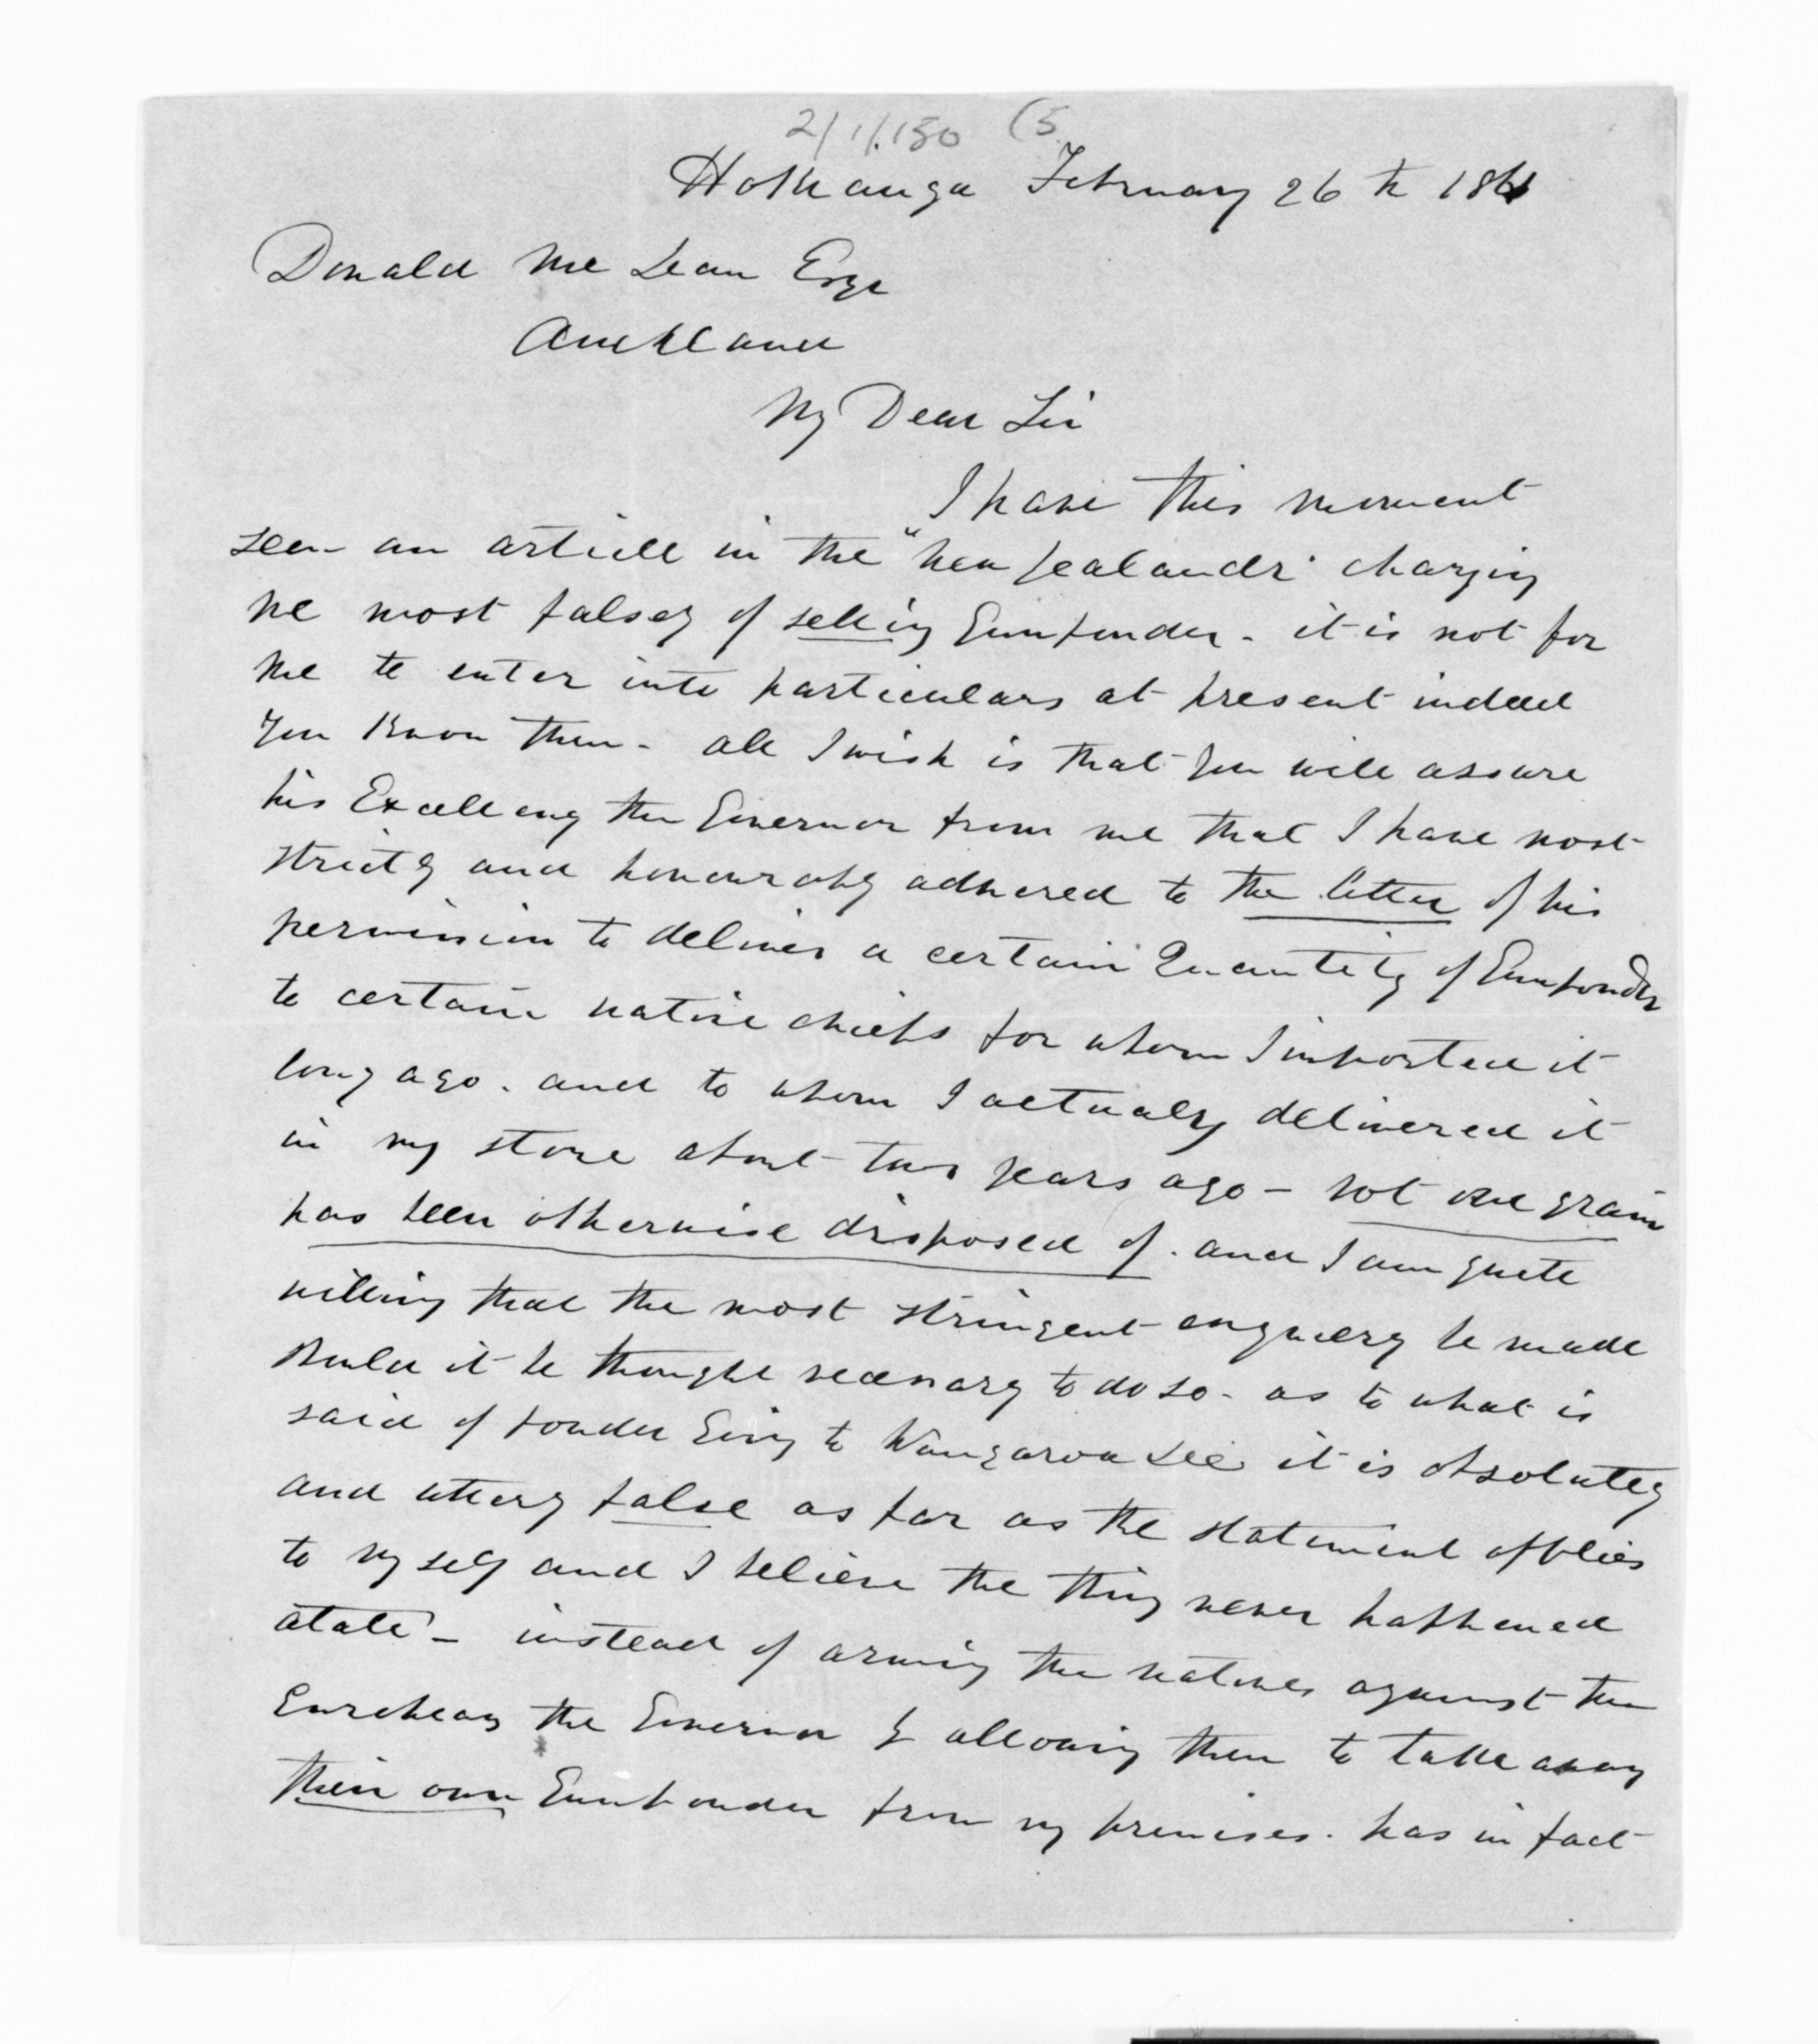 2/1/.150 (5
Hokianga February 26th 1861
Donald Mc Lean Esqr
Auckland
My Dear Sir
I have this moment
seen an article in the "New Zealander" charging
me most falsely of selling Gunpowder - it is not for
me to enter into particulars at present indeed
you know them - all I wish is that you will assure
his Excellency the Governor from me that I have most
strictly and honourably adhered to the letter of his
permission to deliver a certain Quantity of Gunpowder
to certain native chiefs for whom I imported it
long ago. and to whom I actually delivered it
in my store about two years ago - not one grain
has been otherwise disposed of. and I am quite
willing that the most stringent enquiery be made
should it be thought necessary to do so - as to what is
said of powder Going to Wangaroa &c it is absolutely
and utterly false as far as the statement applies
to myself and I believe the thing never happened
atall - instead of arming the natives against the
Europeans the Governor by allowing them to take away
their own Gunpowder from my premises. has in fact